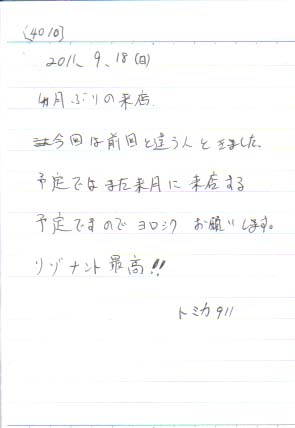 [4010]
2011、9、18(日)
4ヵ月ぶりの来店.
今回は前回と違う人ときました.
予定ではまた来月に来店する
予定ですので ヨロシク お願いします。
リゾナント最高!!
トミカ911